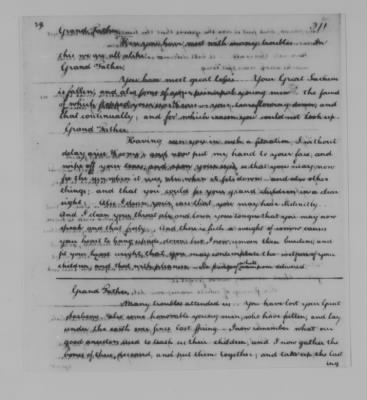 29 311
Grand Father
When you have met with many troubles In
this we are all alike
Grand Father,
You have meet great losses. Your Great Sachem
is fallen, and also some of your principal young men. the sound
of which your ears your tears flowing down, and
that continually; and for which reason you could not look up.
Grand Father.
Having seen you in such a situation, I without
delay now put my hand to your face, and
wipe off your tears, and your eyes so that you may now
see the sun when it sits down and also other
things; and that you could see your grand children in a clear
light. Also I clean your ears that you may hear distinctly.
And I clean your throat and loose your tongue that you may now
speak and that freely. And there is such a weight of sorrow causes
your heart to hang down but I now remove these burdens, and
set your heart upright, that you may contemplate the welfare of your
children, and that with pleasure. delivered
Grand Father.
Many troubles attended us. You have lost your Great
Sachems, also some honorable young men, who have fallen, and lay
under the earth ever since last Spring. I now remember what our
good ancestors used to teach us their children; and I now gather the
bones of these deceased, and put them together; and take up the last
ing